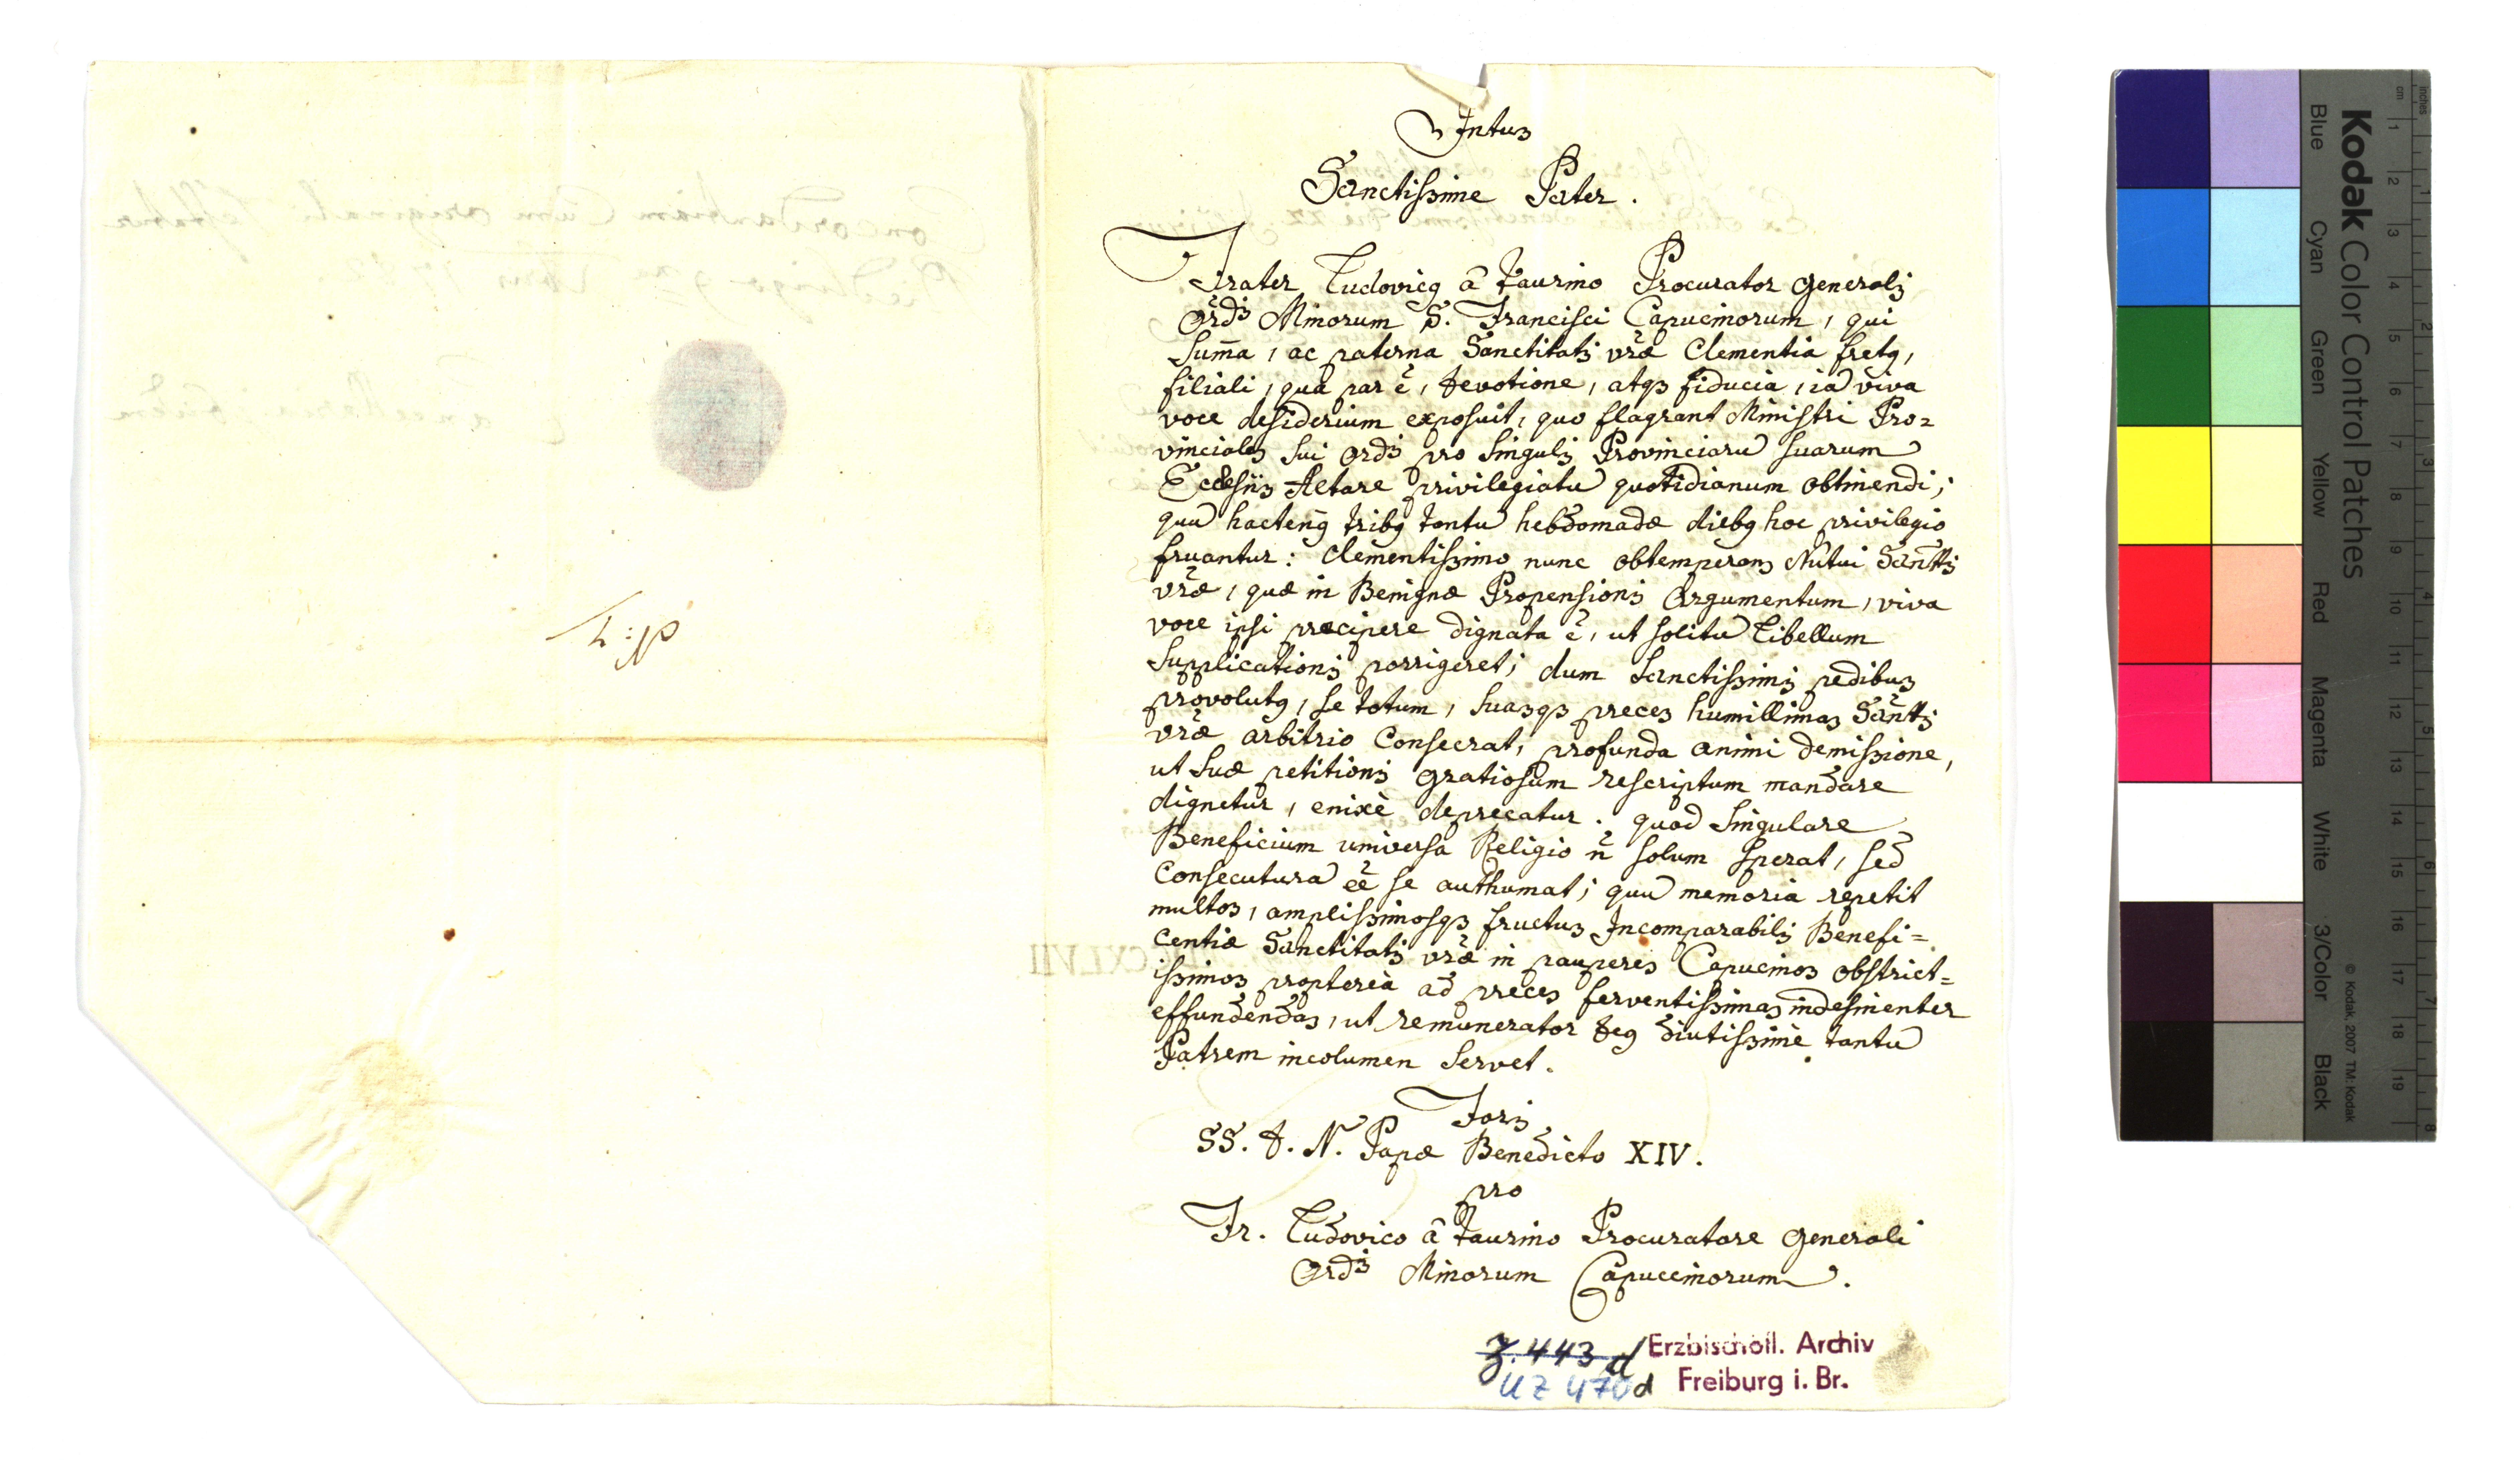 Intus
Sanctissime Pater.
Frater Ludovicꝯ â Taurino Procurator Generalis
Ordĩs Minorum S. Francisci Capucinorum, qui
suma̅, ac paterna Sanctitatis vrǣ Clementia fretꝯ,
filiali, qua par ẽ, devotione, atqꝫ fiducia, ia̅ viva
voce desiderium exposuit, quo flagrant Ministri Pro=
vinciales sui Ordĩs pro singulis Provinciaru̅ suarum
Ecclesiis Altare privilegiatu̅ quotidianum obtinendi;
quu̅ hactenꝯ tribꝯ tantu̅ hebdomadæ diebꝯ hoc privilegio
fruantur: Clementissimo nunc obtemperans Nutui Sancttĩs
vrǣ, quæ in Benignæ Propensionis Argumentum, viva
voce ipsi præcipere dignata ẽ, ut solitu̅ Libellum
supplicationis porrigeret; dum Sanctissimis pedibus
provolutꝯ, se totum, suasqꝫ preces humillimas Sancttĩs
vrǣ arbitrio Consecrat, profunda animi demissione,
ut suæ petitionis gratiosum rescriptum mandare
dignetur, enixè deprecatur. quod singulare
Beneficium universa Religio n̅ solum sperat, sed
Consecutura̅ ẽẽ se authumat; quu̅ memoria repetit
multos, amplissimosqꝫ fructus Incomparabilis Benefi=
centiæ Sanctitatis vrǣ in pauperes Capucinos obstrict=
issimos proptereà ad preces ferventissimas indesinenter
effundendas, ut remunerator Deꝯ diutissimè tantu̅
Patrem incolumen servet.
Foris
SS. D. N. Papæ Benedicto XIV.
pro
Fr. Ludovico â Taurino Procuratore Generali
Ordĩs Minorum Capuccinorum.
Z. 443 d
UZ 470 d
Erzbischöfl. Archiv
Freiburg i. Br.
Kodak Color Control Patches
Blue Cyan Green Yellow Red Magenta White 3/Color Black
© Kodak, 2007 TM: Kodak
cm 1 2 3 4 5 6 7 8 9 10 11 12 13 14 15 16 17 18 19
inches 1 2 3 4 5 6 7 8